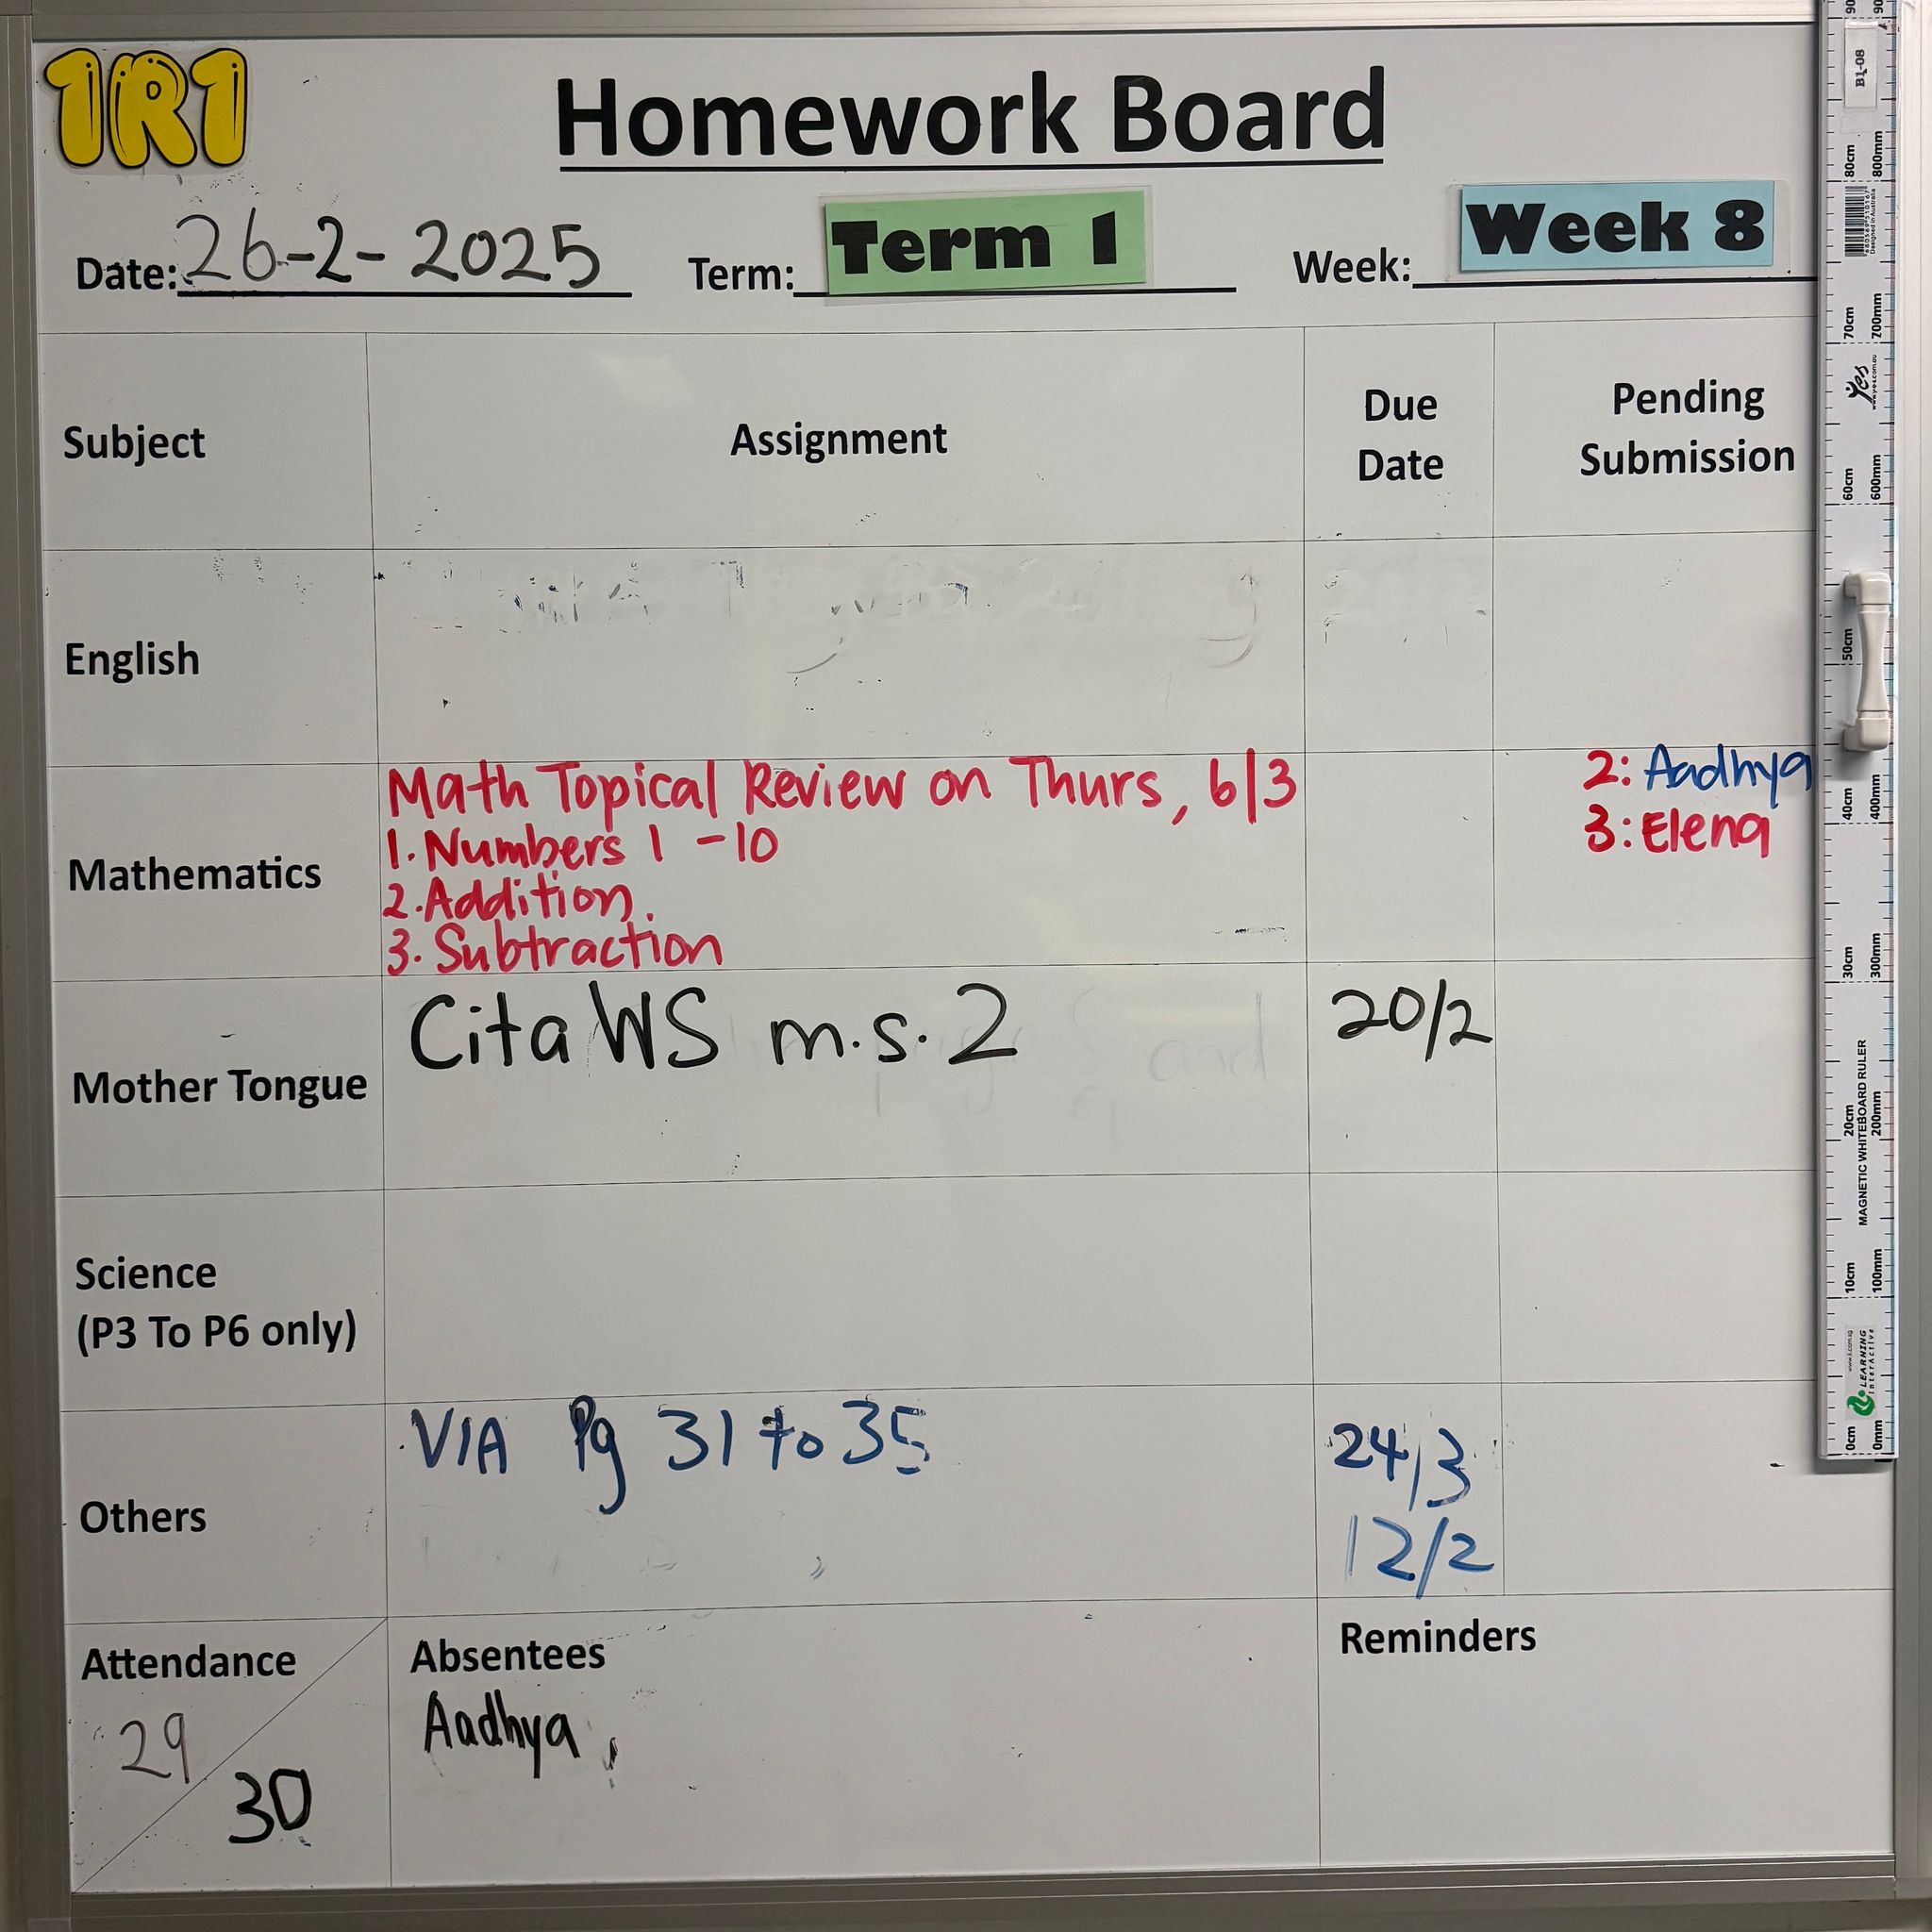 1R1
Homework Board
Date: 26-2-2025 Term: Term 1 Week: Week 8
Subject Assignment Due Date Pending Submission
English
Mathematics
Math Topical Review on Thurs, 6/3
1. Numbers 1 - 10
2. Addition.
3. Subtraction
2: Aadhya
3: Elena
Mother Tongue
Cita WS m.s. 2 20/2
Science
(P3 To P6 only)
Others
VIA Pg 31 to 35 24/3
12/2
Attendance
29
30
Absentees
Aadhya,
Reminders
B1-08
Designed in Australia
yes
www.yes.com.au
90
80cm 800mm
70cm 700mm
60cm 600mm
50cm
40cm 400mm
30cm 300mm
20cm 200mm
MAGNETIC WHITEBOARD RULER
10cm 100mm
0cm 0mm
LEARNING
interActive